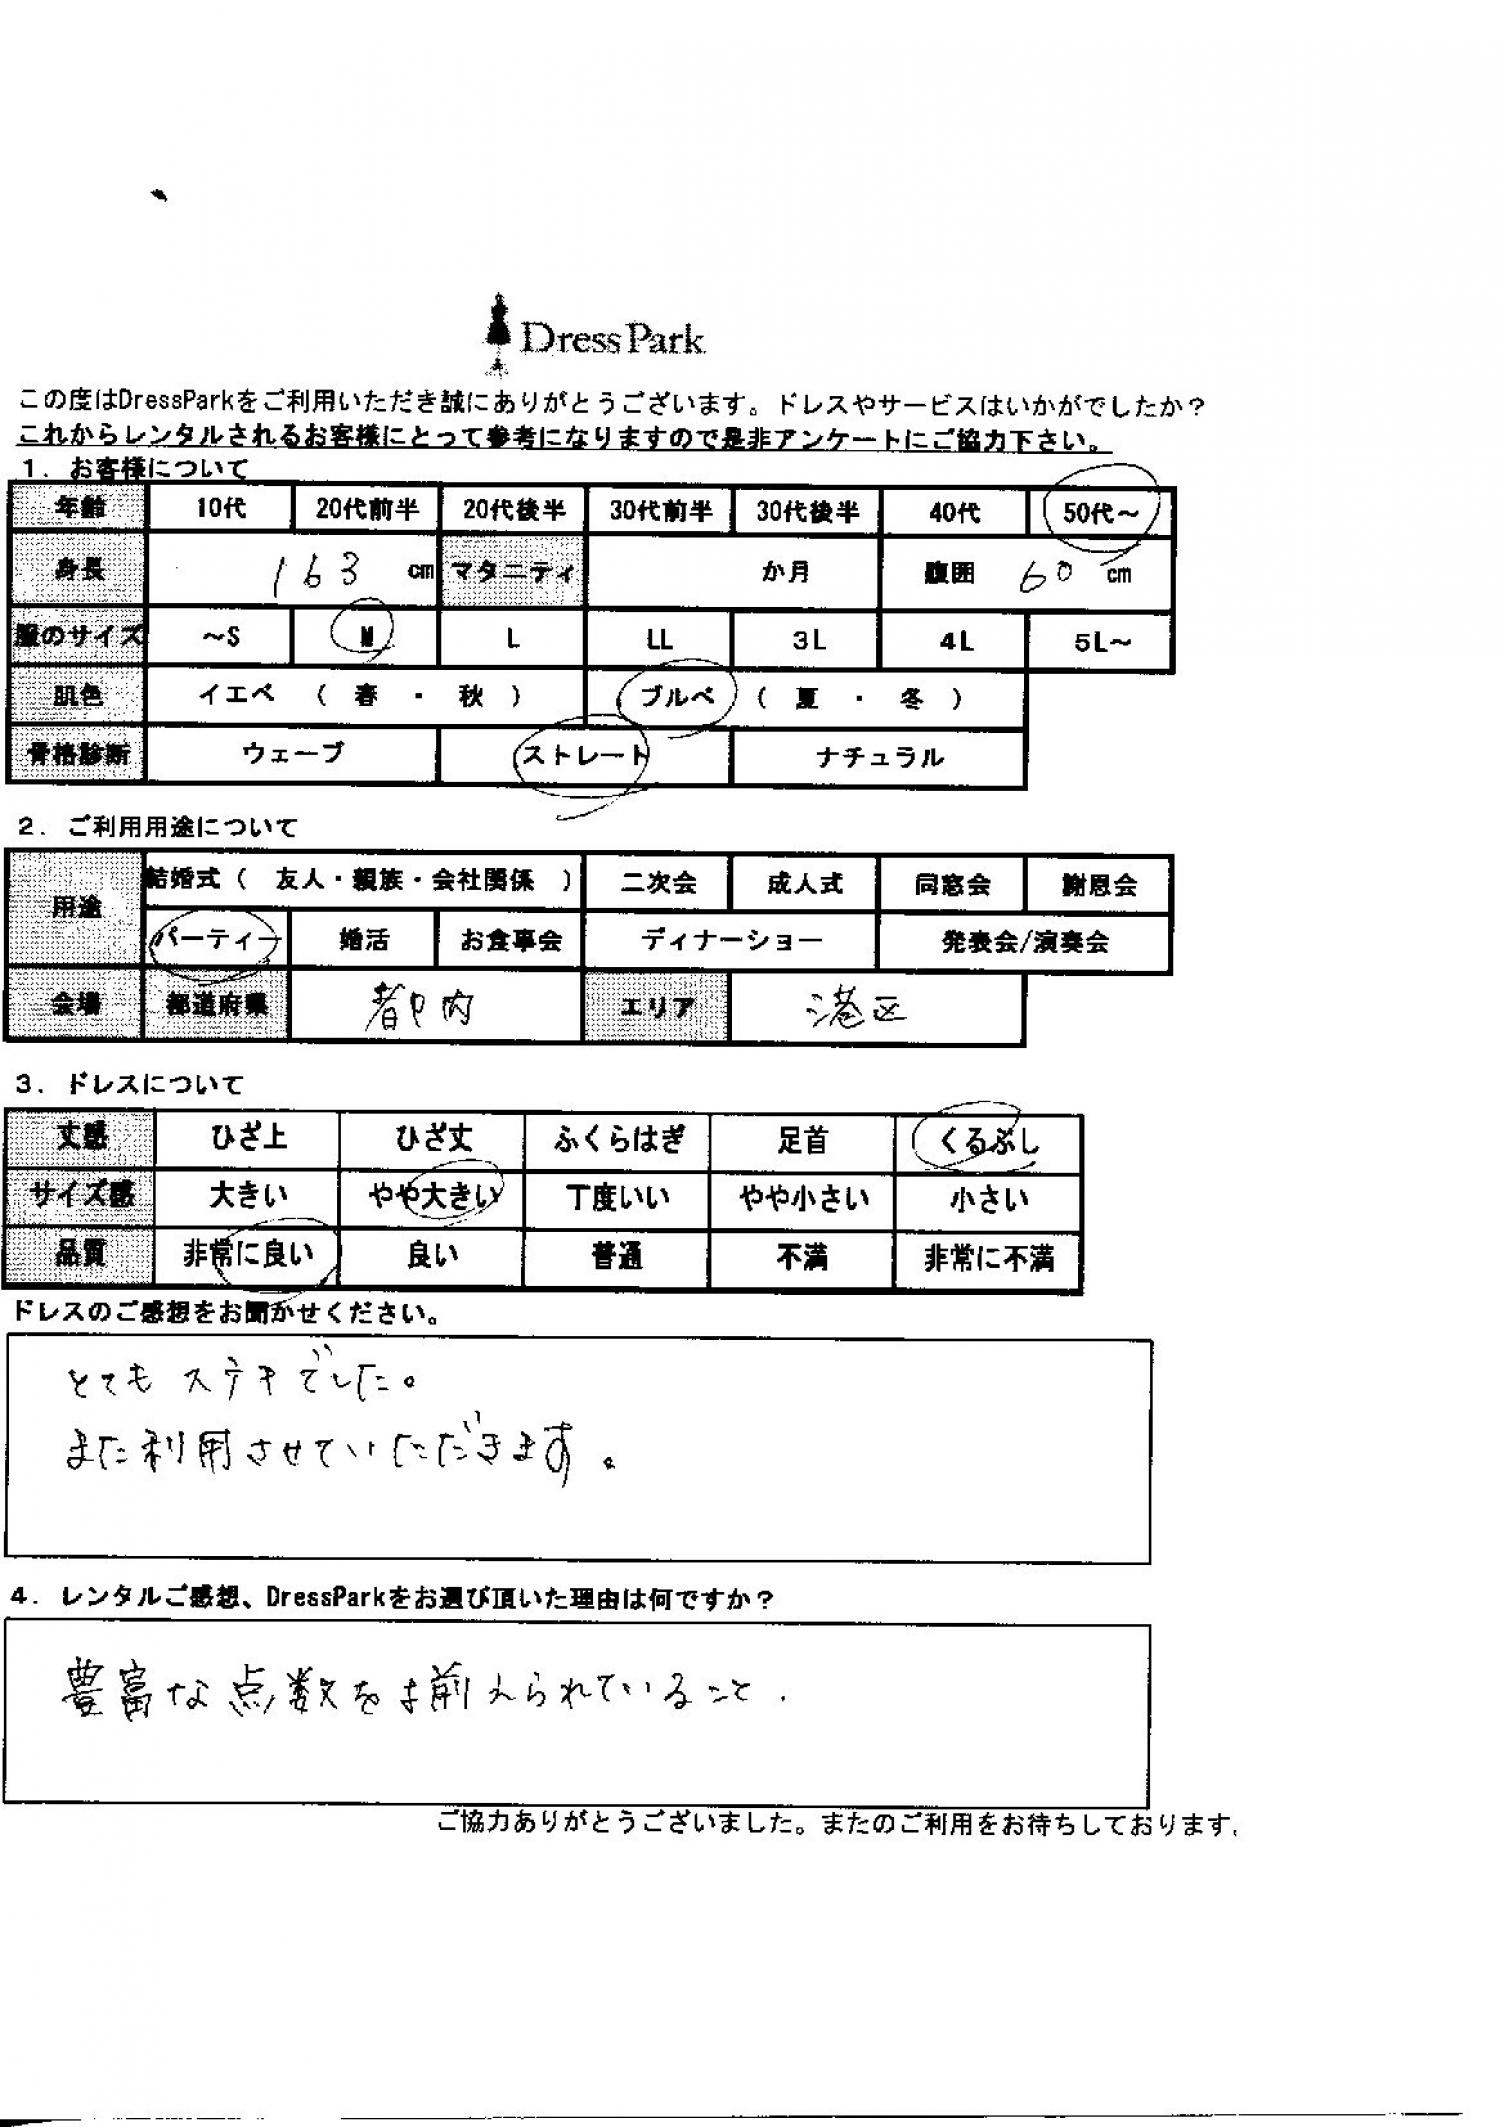 DressPark
この度はDressParkをご利用いただき誠にありがとうございます。ドレスやサービスはいかがでしたか？
これからレンタルされるお客様にとって参考になりますので是非アンケートにご協力下さい。
１．お客様について
年齢 10代 20代前半 20代後半 30代前半 30代後半 40代 50代～
身長 163 cm マタニティ か月 腹囲 60 cm
服のサイズ ～S M L LL 3L 4L 5L～
肌色 イエベ （ 春 ・ 秋 ） ブルベ （ 夏 ・ 冬 ）
骨格診断 ウェーブ ストレート ナチュラル
２．ご利用用途について
用途 結婚式（ 友人・親族・会社関係 ） 二次会 成人式 同窓会 謝恩会
パーティー 婚活 お食事会 ディナーショー 発表会/演奏会
会場 都道府県 都内 エリア 港区
３．ドレスについて
丈感 ひざ上 ひざ丈 ふくらはぎ 足首 くるぶし
サイズ感 大きい やや大きい 丁度いい やや小さい 小さい
品質 非常に良い 良い 普通 不満 非常に不満
ドレスのご感想をお聞かせください。
とてもステキでした。
また利用させていただきます。
４．レンタルご感想、DressParkをお選び頂いた理由は何ですか？
豊富な点数を揃えられていること.
ご協力ありがとうございました。またのご利用をお待ちしております。